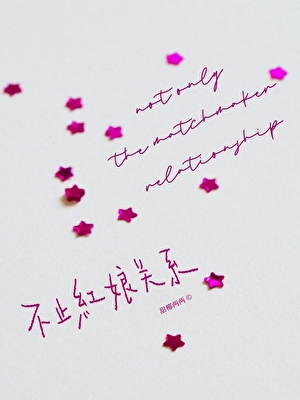 not only
the matchmaker
relationship
不止紅娘关系
甜椰两两 ©